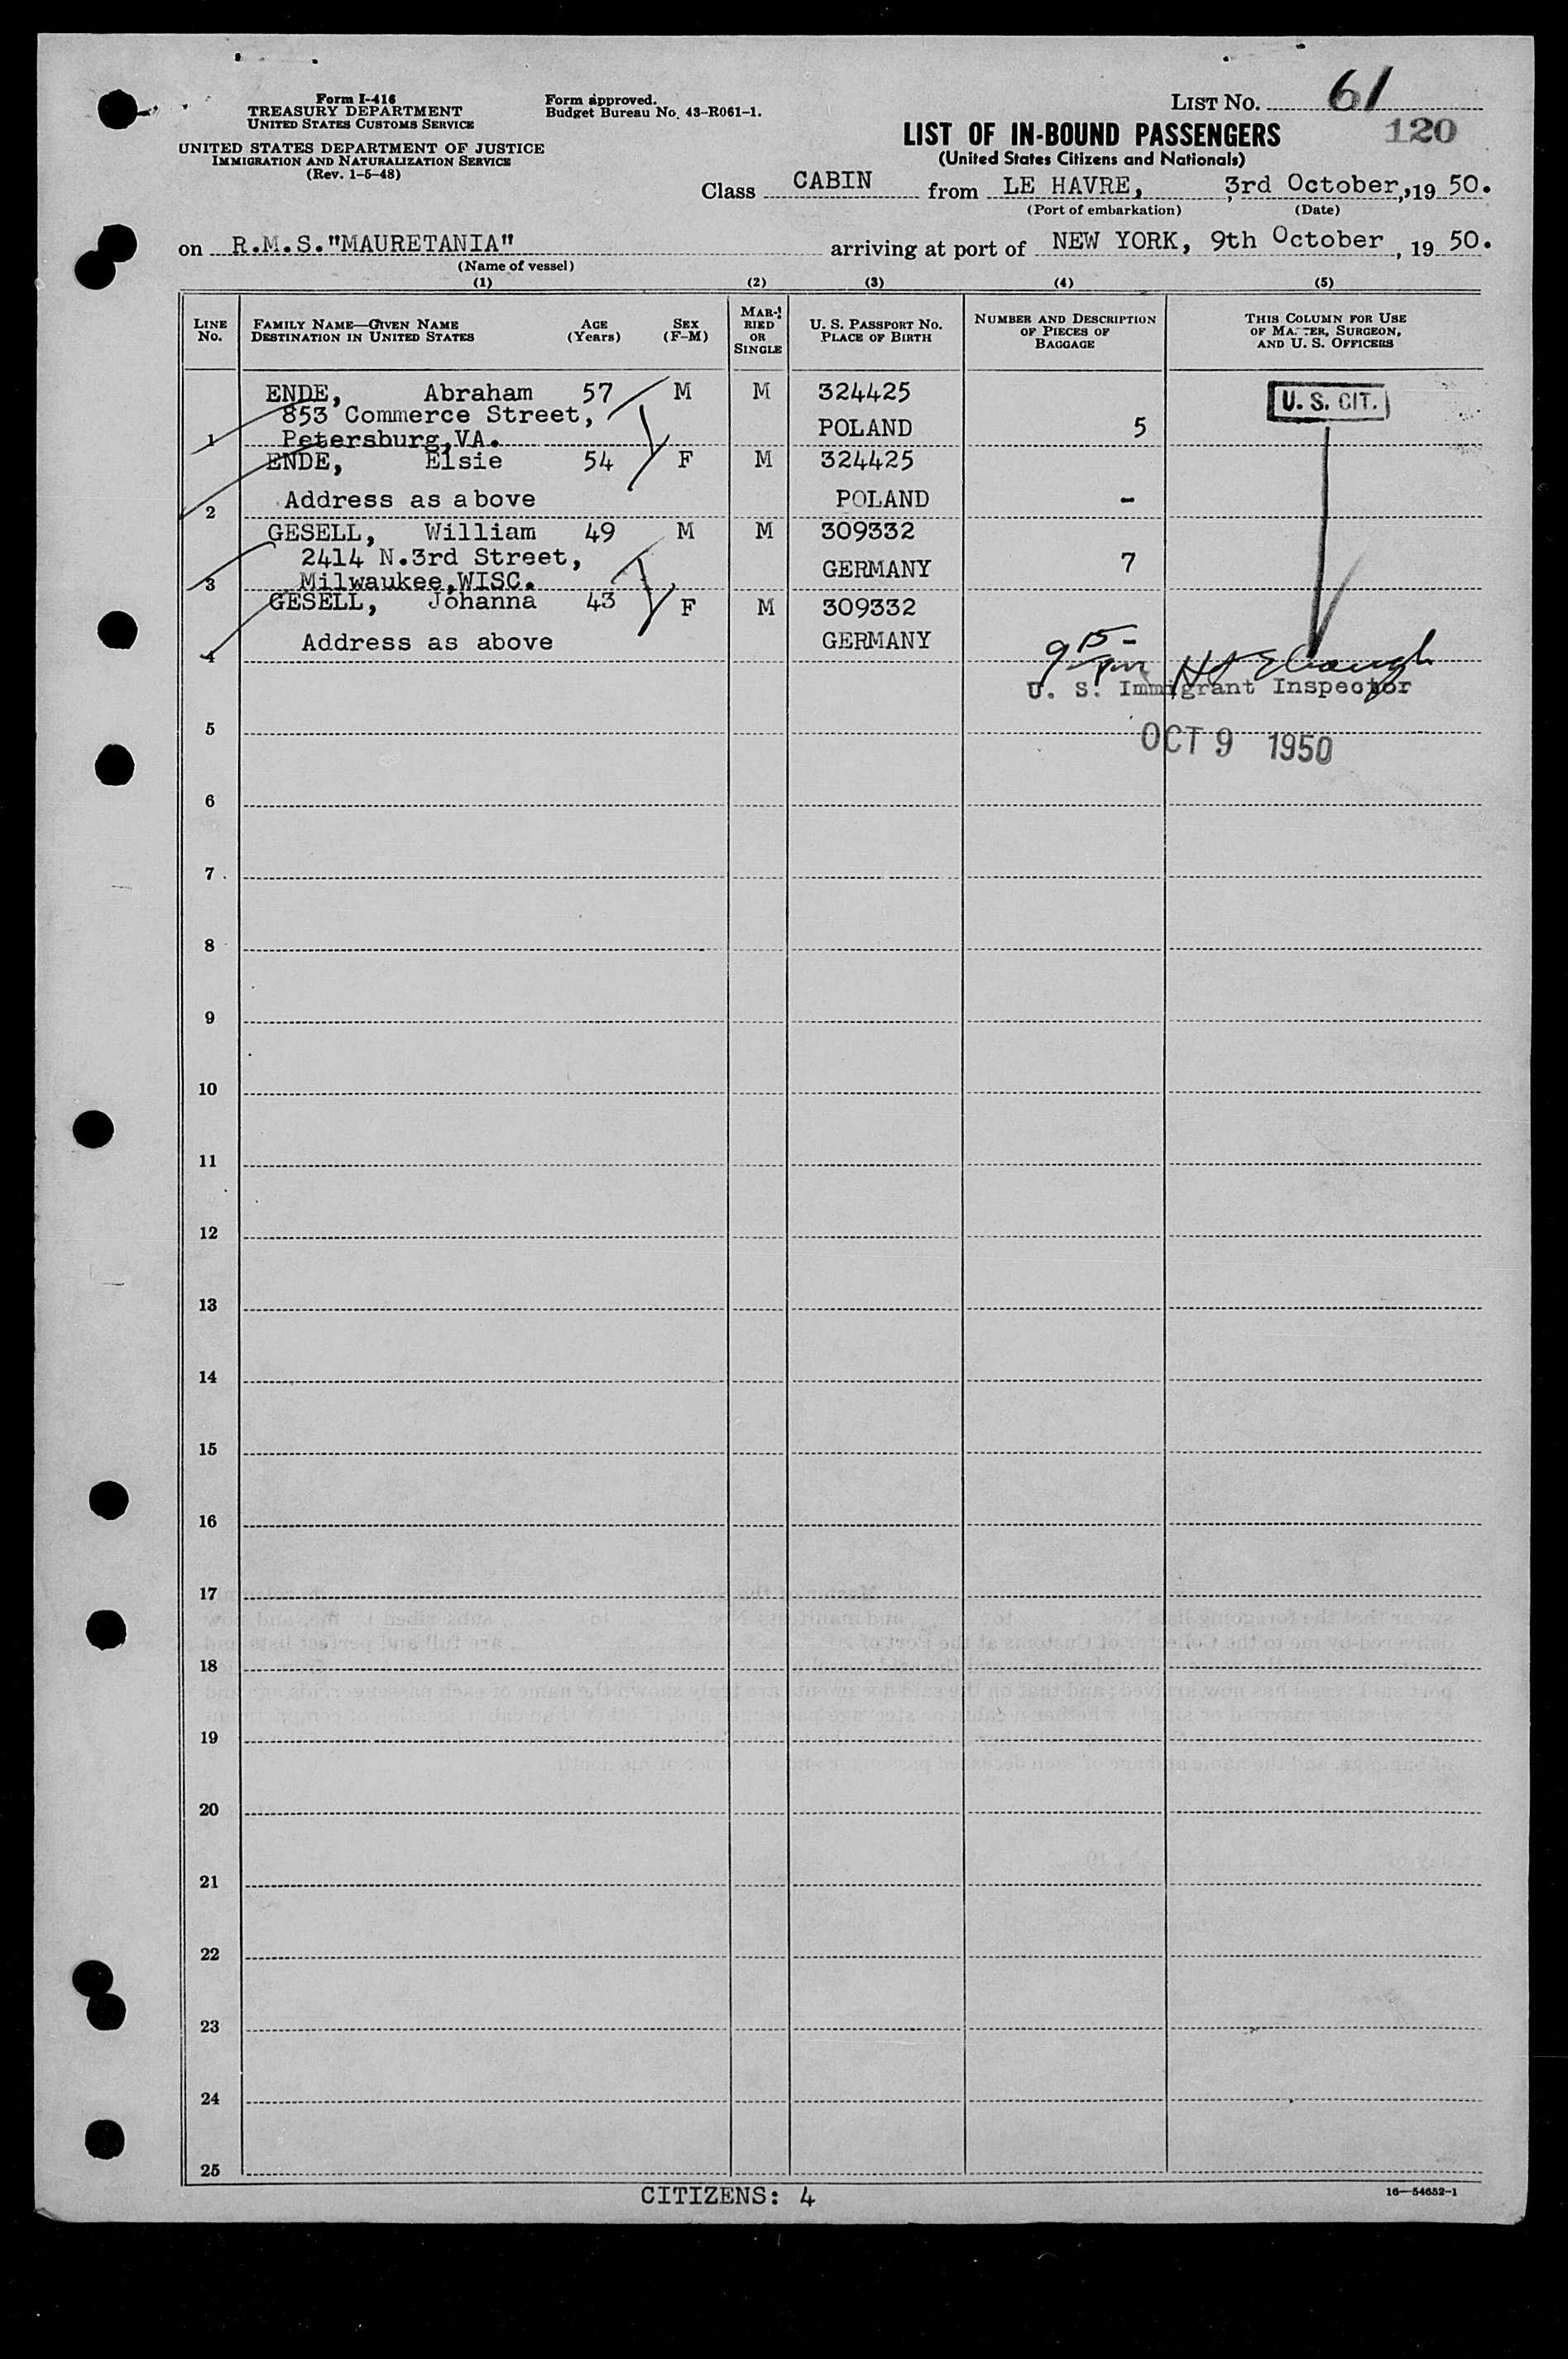 Form I-416
TREASURY DEPARTMENT
UNITED STATES CUSTOMS SERVICE
UNITED STATES DEPARTMENT OF JUSTICE
IMMIGRATION AND NATURALIZATION SERVICE
(Rev. 1-5-48)
Form approved.
Budget Bureau No. 43-R061-1.
LIST NO. 61
120
LIST OF IN-BOUND PASSENGERS
(United States Citizens and Nationals)
Class CABIN from LE HAVRE, 3rd October, 19 50.
(Port of embarkation) (Date)
on R.M.S."MAURETANIA" arriving at port of NEW YORK, 9th October, 19 50.
(Name of vessel)
(1) (2) (3) (4) (5)
LINE NO. FAMILY NAME—GIVEN NAME DESTINATION IN UNITED STATES AGE (Years) SEX (F-M) MARRIED OR SINGLE U. S. PASSPORT NO. PLACE OF BIRTH NUMBER AND DESCRIPTION OF PIECES OF BAGGAGE THIS COLUMN FOR USE OF MASTER, SURGEON, AND U. S. OFFICERS
ENDE, Abraham 57 M M 324425 U. S. CIT.
853 Commerce Street, POLAND 5
1 Petersburg,VA.
ENDE, Elsie 54 F M 324425
2 Address as above POLAND -
GESELL, William 49 M M 309332
2414 N.3rd Street, GERMANY 7
3 Milwaukee,WISC.
GESELL, Johanna 43 F M 309332
4 Address as above GERMANY -
9 15 pm
U. S. Immigrant Inspector
5 OCT 9 1950
6
7
8
9
10
11
12
13
14
15
16
17
18
19
20
21
22
23
24
25
CITIZENS: 4
16—54652-1